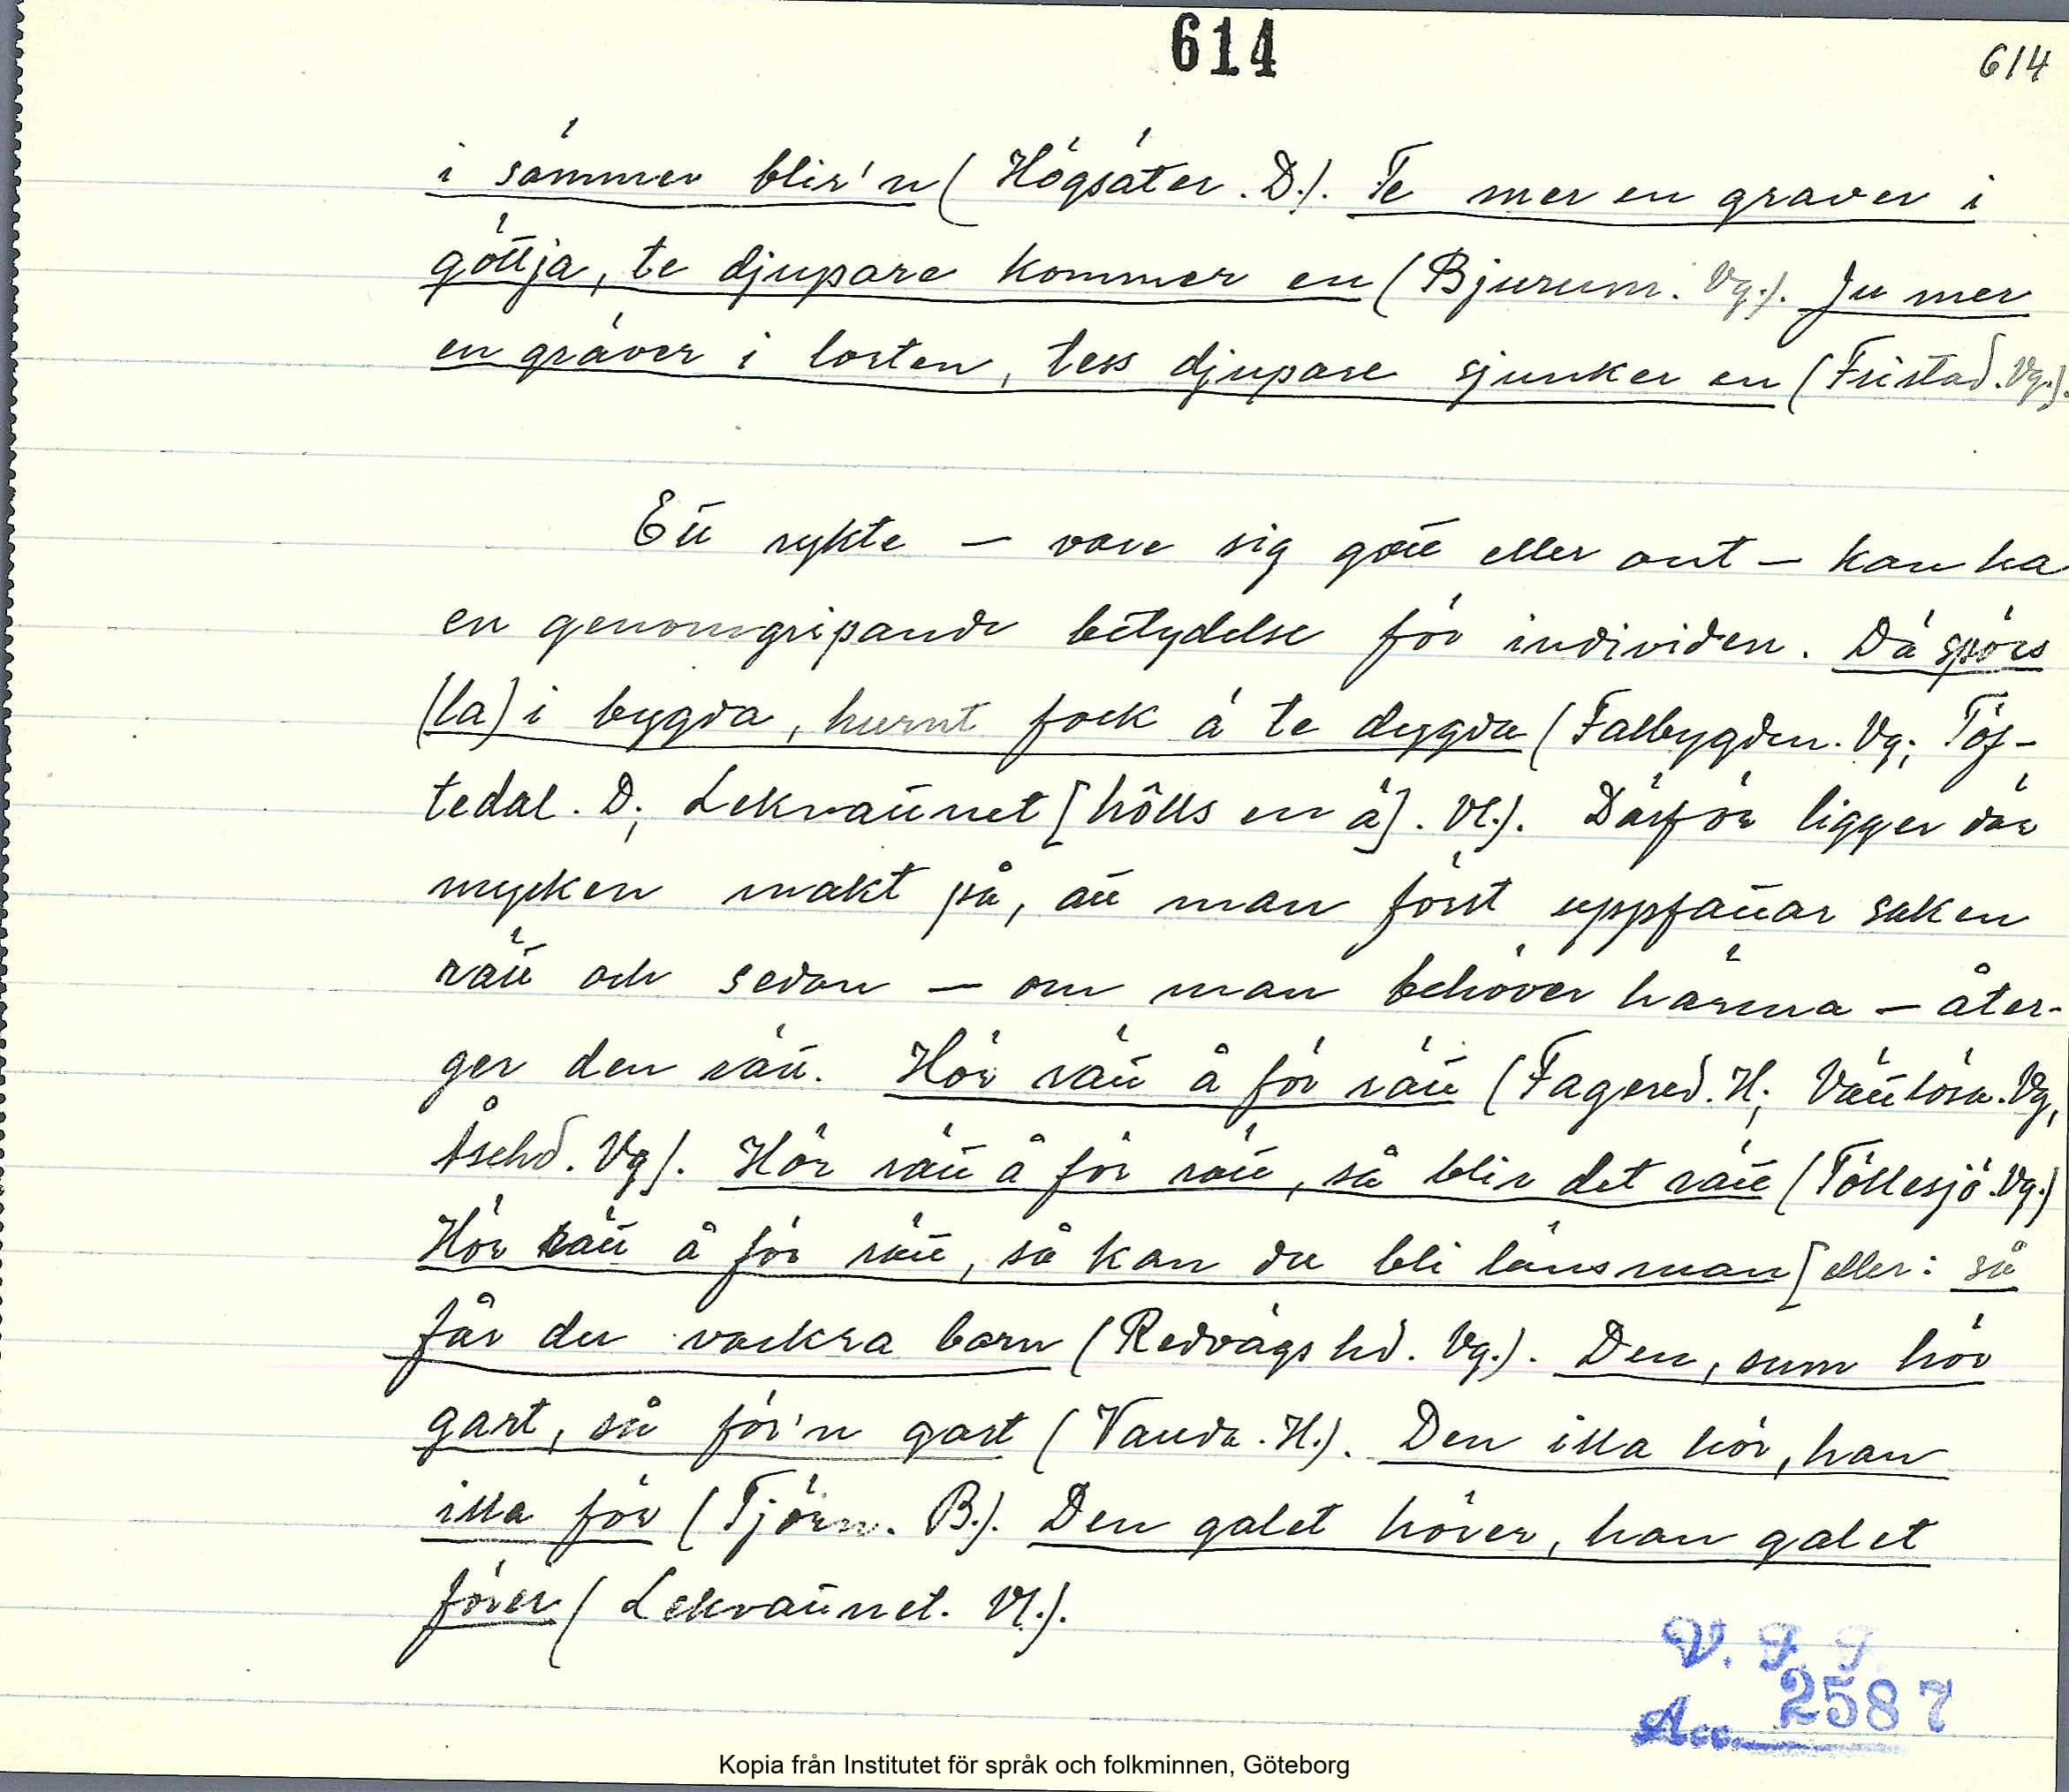 614
614
i sämmer blir'n (Högsäter. D.). Te mer en graver i
göttja, te djupare kommer en (Bjurum. Vg.). Ju mer
en gräver i lorten, tess djupare sjunker en (Fristad. Vg.).
Ett rykte – vare sig gott eller ont – kan ha
en genomgripande betydelse för individen. Dä spörs
(la) i bygda, hurnt fock ä te dygda (Falbygden. Vg; Töf-
tedal. D; Lekvattnet [hôlls en ä]. Vl.). Därför ligger där
mycken makt på, att man först uppfattar saken
rätt och sedan – om man behöver härma – åter-
ger den rätt. Hör rätt å för rätt (Fagered. H; Vättlösa. Vg,
Åsehd. Vg). Hör rätt å för rätt, så blir det rätt (Töllesjö. Vg.)
Hör rätt å för rätt, så kan du bli länsman [eller: så
får du vackra barn (Redvägs hd. Vg.). Den, sum hör
gart, så för'n gart (Vanda. H.). Den illa hör, han
illa för (Tjörn. B.). Den galet hörer, han galet
förer (Lekvattnet. Vl.).
V. F. F.
Acc. 2587
Kopia från Institutet för språk och folkminnen, Göteborg